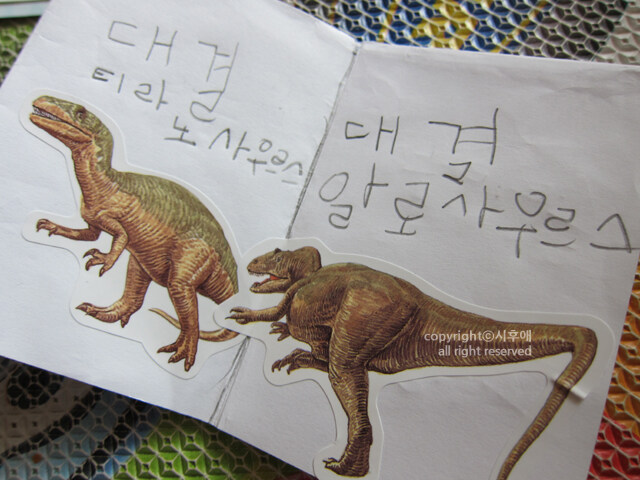 대결
티라
노사우르스
대결
알로사우르스
copyrightⓒ시후애
all right reserved